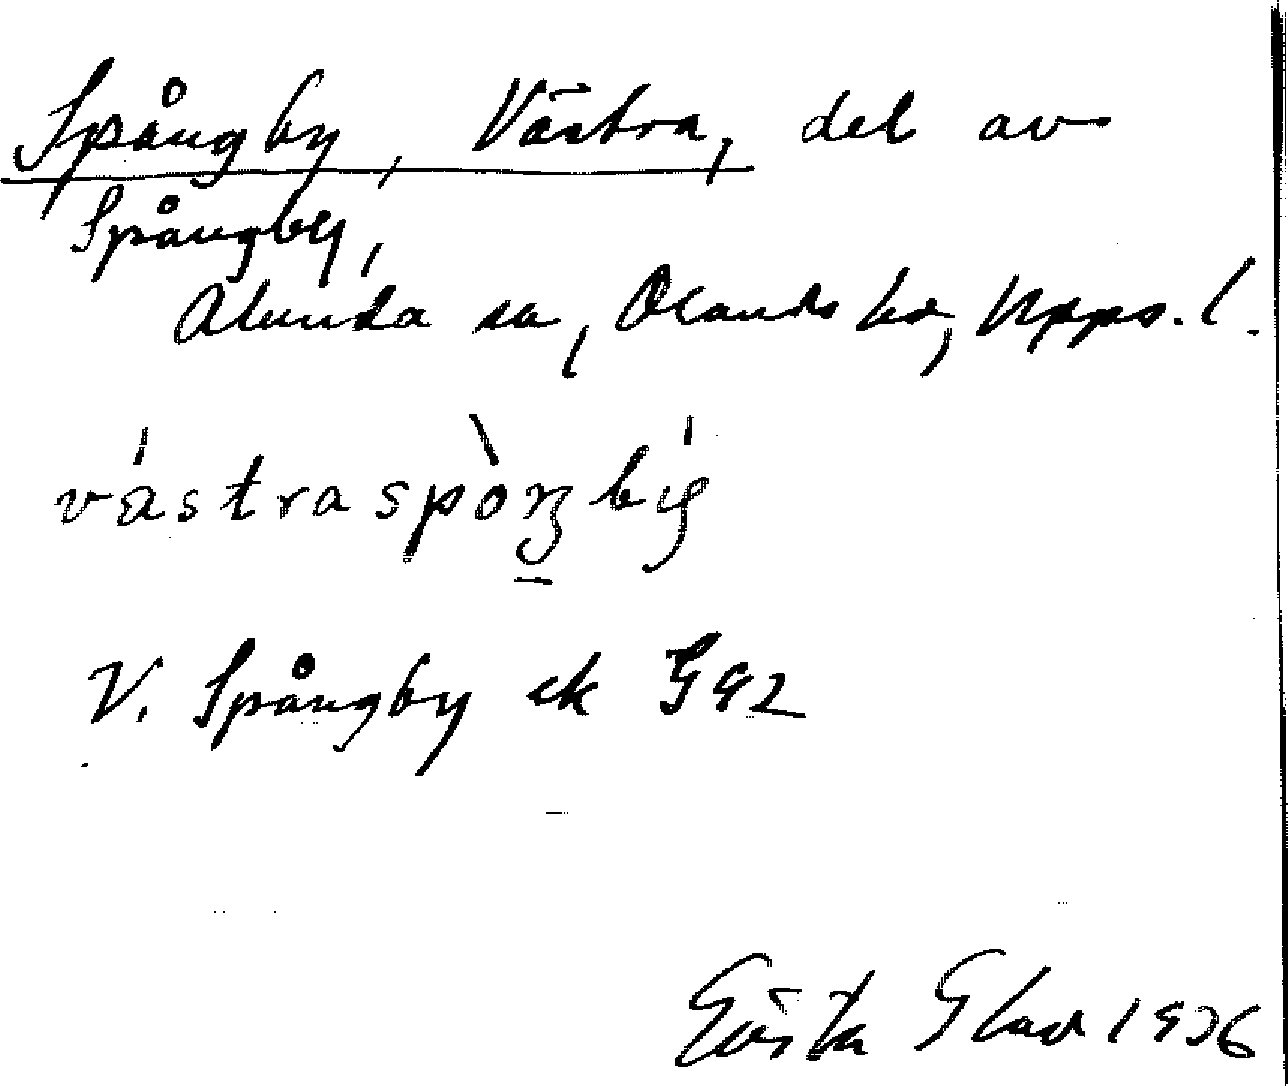 Spångby, Västra, del av
Spångby,
Alunda sn, Olands hd, Upps. l.
västraspòŋby
V. Spångby ek G92
Gösta Glad 1936